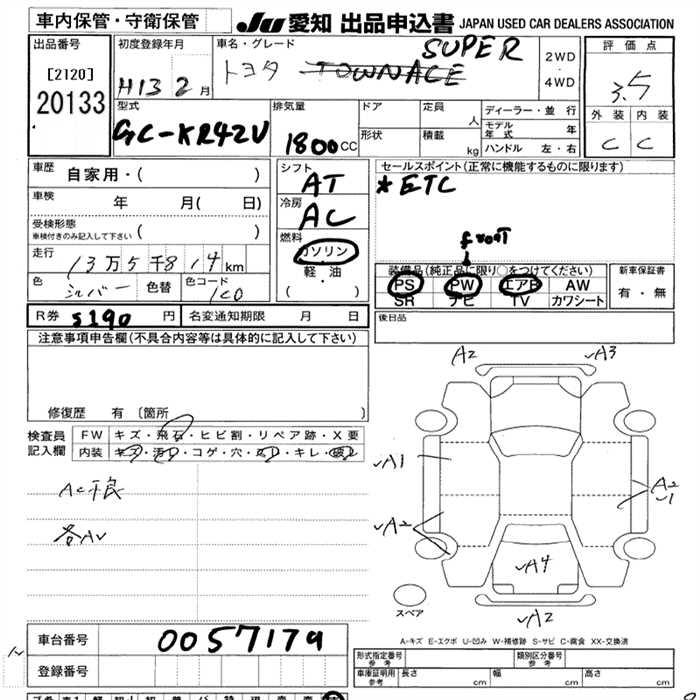 車内保管・守衛保管 JU 愛知 出品申込書 JAPAN USED CAR DEALERS ASSOCIATION
出品番号 [2120] 20133
初度登録年月 H13 2月
車名・グレード トヨタ TOWNACE SUPER
2WD・4WD
評価点 3.5
外装 内装
C C
型式 GC-KR42V
排気量 1800cc
ドア 定員 人
形状 積載 kg
ディーラー・並行
モデル年式 年
ハンドル 左・右
車歴 自家用・( )
車検 年 月( 日)
受検形態 車検付きのみ記入して下さい ( )
走行 13万5千814km
色 シルバー 色替 色コード 1C0
シフト AT
冷房 AC
燃料 ガソリン
軽・油
( ・ )
セールスポイント(正常に機能するものに限ります)
*ETC
front
装備品(純正品に限り○をつけてください)
PS PW エアB AW
SR ナビ TV カワシート
新車保証書
有・無
後日品
R券 5190円 名変通知期限 月 日
注意事項申告欄(不具合内容等は具体的に記入して下さい)
修復歴 有 〔箇所 〕
検査員記入欄
FW キズ・飛石・ヒビ割・リペア跡・X要
内装 キズ・汚れ・コゲ・穴・・キレ・破レ
AC不良
各AV
A2 A3
A1
A2
A2
1
A4
A2
スペア
A-キズ E-エクボ U-凹み W-補修跡 S-サビ C-腐食 XX-交換済
車台番号 0057179
登録番号
形式指定番号 参考 類別区分番号 参考
車庫証明用 参考 長さ cm 幅 cm 高さ cm